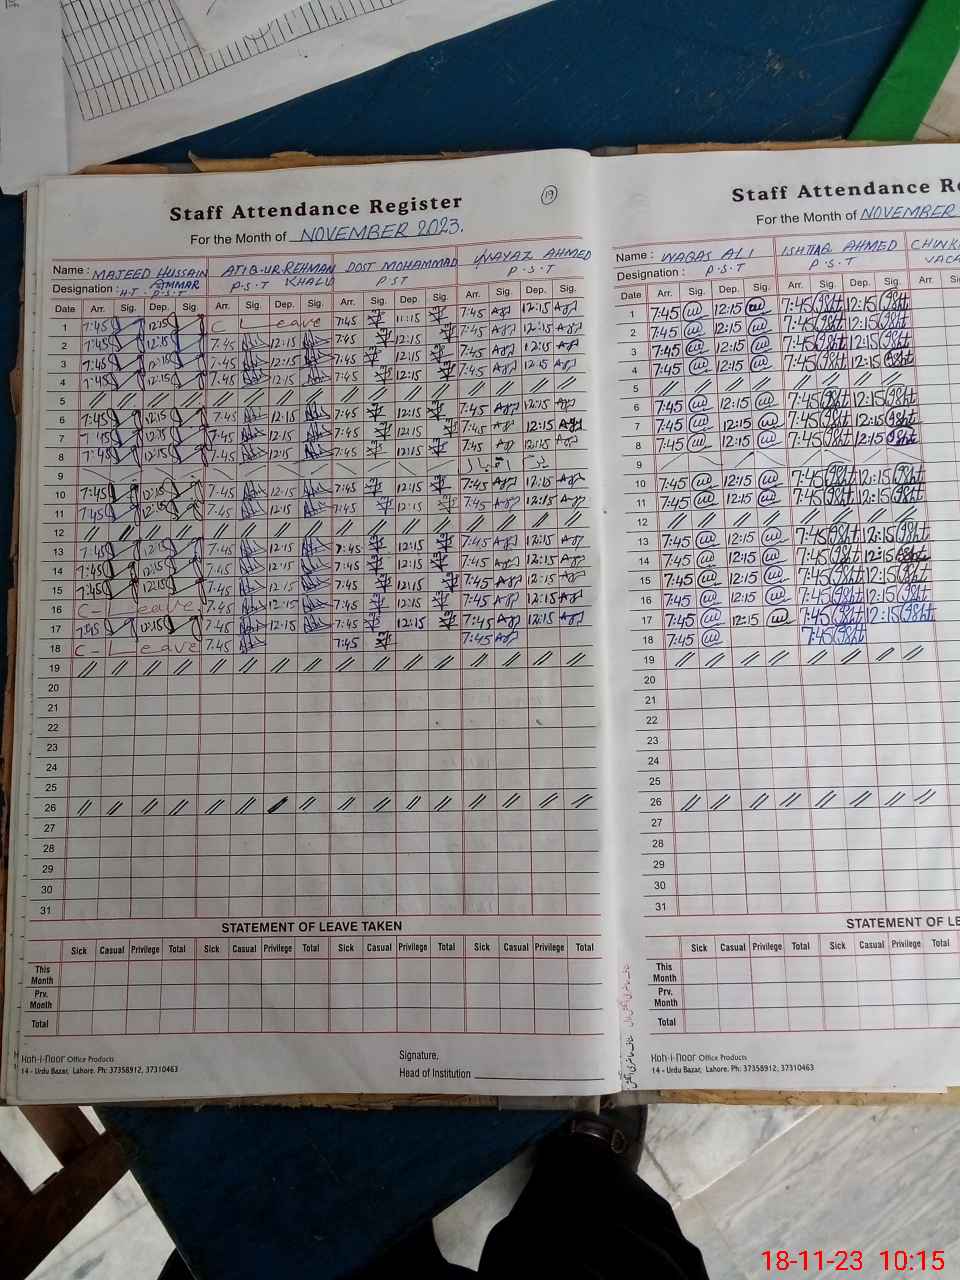 19
Staff Attendance Register
For the Month of NOVEMBER 2023.
Name : MAJEED HUSSAIN ATIQ-UR-REHMAN KHALID DOST MOHAMMAD AHMED
Designation : H.T P.S.T P.S.T PST P.S.T
Date Arr. Sig. Dep. Sig. Arr. Sig. Dep. Sig. Arr. Sig. Dep. Sig. Arr. Sig. Dep. Sig.
1 7:45 12:15 C Leave 7:45 11:15 7:45 12:15
2 7:45 12:15 7:45 12:15 7:45 12:15 7:45 12:15
3 7:45 12:15 7:45 12:15 7:45 12:15 7:45 12:15
4 7:45 12:15 7:45 12:15 7:45 12:15 7:45 12:15
5
6 7:45 12:15 7:45 12:15 7:45 12:15 7:45 12:15
7 7:45 12:15 7:45 12:15 7:45 12:15 7:45 12:15
8 7:45 12:15 7:45 12:15 7:45 12:15 7:45 12:15
9
10 7:45 12:15 7:45 12:15 7:45 12:15 7:45 12:15
11 7:45 12:15 7:45 12:15 7:45 12:15 7:45 12:15
12
13 7:45 12:15 7:45 12:15 7:45 12:15 7:45 12:15
14 7:45 12:15 7:45 12:15 7:45 12:15 7:45 12:15
15 7:45 12:15 7:45 12:15 7:45 12:15 7:45 12:15
16 C-Leave 7:45 12:15 7:45 12:15 7:45 12:15
17 7:45 12:15 7:45 12:15 7:45 12:15 7:45 12:15
18 C-Leave 7:45 7:45 7:45
19
20
21
22
23
24
25
26
27
28
29
30
31
STATEMENT OF LEAVE TAKEN
Sick Casual Privilege Total Sick Casual Privilege Total Sick Casual Privilege Total Sick Casual Privilege Total
This Month
Prv. Month
Total
Signature,
Head of Institution
Koh-i-Noor Office Products
14 - Urdu Bazar, Lahore. Ph: 37358912, 37310463
Staff Attendance Re
For the Month of NOVEMBER
Name : WAQAS ALI ISHTIAQ AHMED
Designation : P.S.T P.S.T VACA
Date Arr. Sig. Dep. Sig. Arr. Sig. Dep. Sig. Arr. Sig.
1 7:45 12:15 7:45 12:15
2 7:45 12:15 7:45 12:15
3 7:45 12:15 7:45 12:15
4 7:45 12:15 7:45 12:15
5
6 7:45 12:15 7:45 12:15
7 7:45 12:15 7:45 12:15
8 7:45 12:15 7:45 12:15
9
10 7:45 12:15 7:45 12:15
11 7:45 12:15 7:45 12:15
12
13 7:45 12:15 7:45 12:15
14 7:45 12:15 7:45 12:15
15 7:45 12:15 7:45 12:15
16 7:45 12:15 7:45 12:15
17 7:45 12:15 7:45 12:15
18 7:45 7:45
19
20
21
22
23
24
25
26
27
28
29
30
31
STATEMENT OF LE
Sick Casual Privilege Total Sick Casual Privilege Total
This Month
Prv. Month
Total
Koh-i-Noor Office Products
14 - Urdu Bazar, Lahore. Ph: 37358912, 37310463
18-11-23 10:15